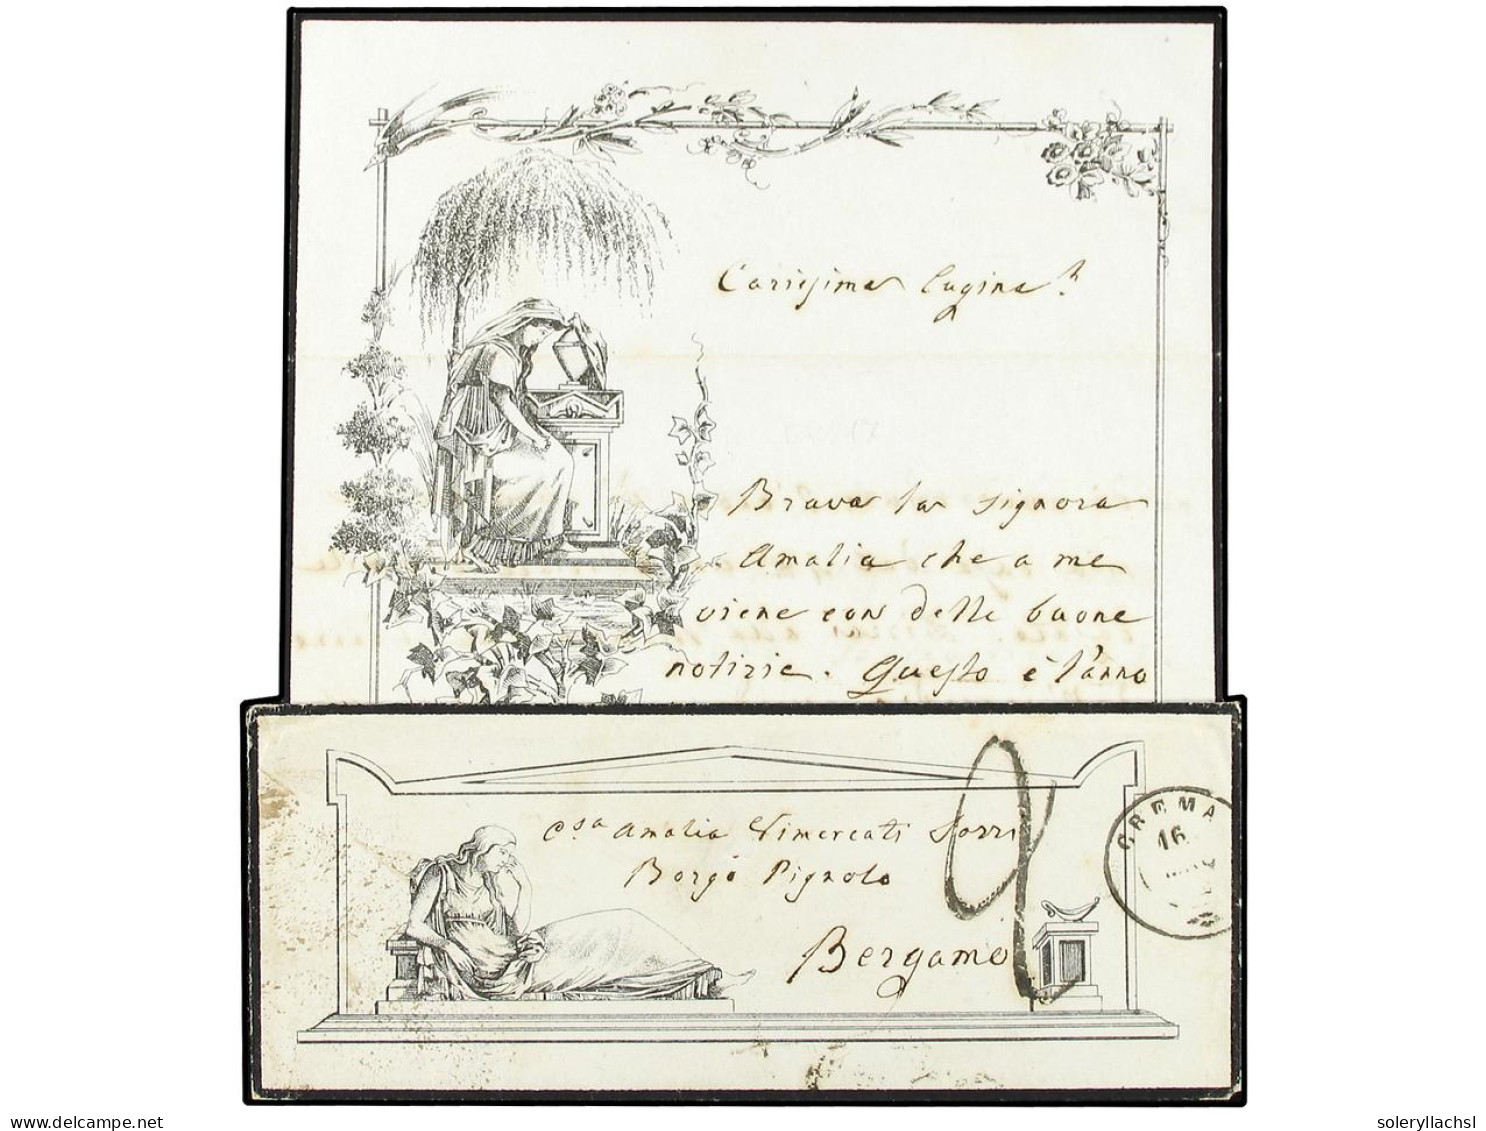 Carissima Cugina
Brava la signora
Amalia che a me
viene con delle buone
notizie. Questo è l'anno
Csa Amalia Vimercati Sozzi
Borgo Pignolo
Bergamo
CREMA
16
www.delcampe.net
soleryllachsl